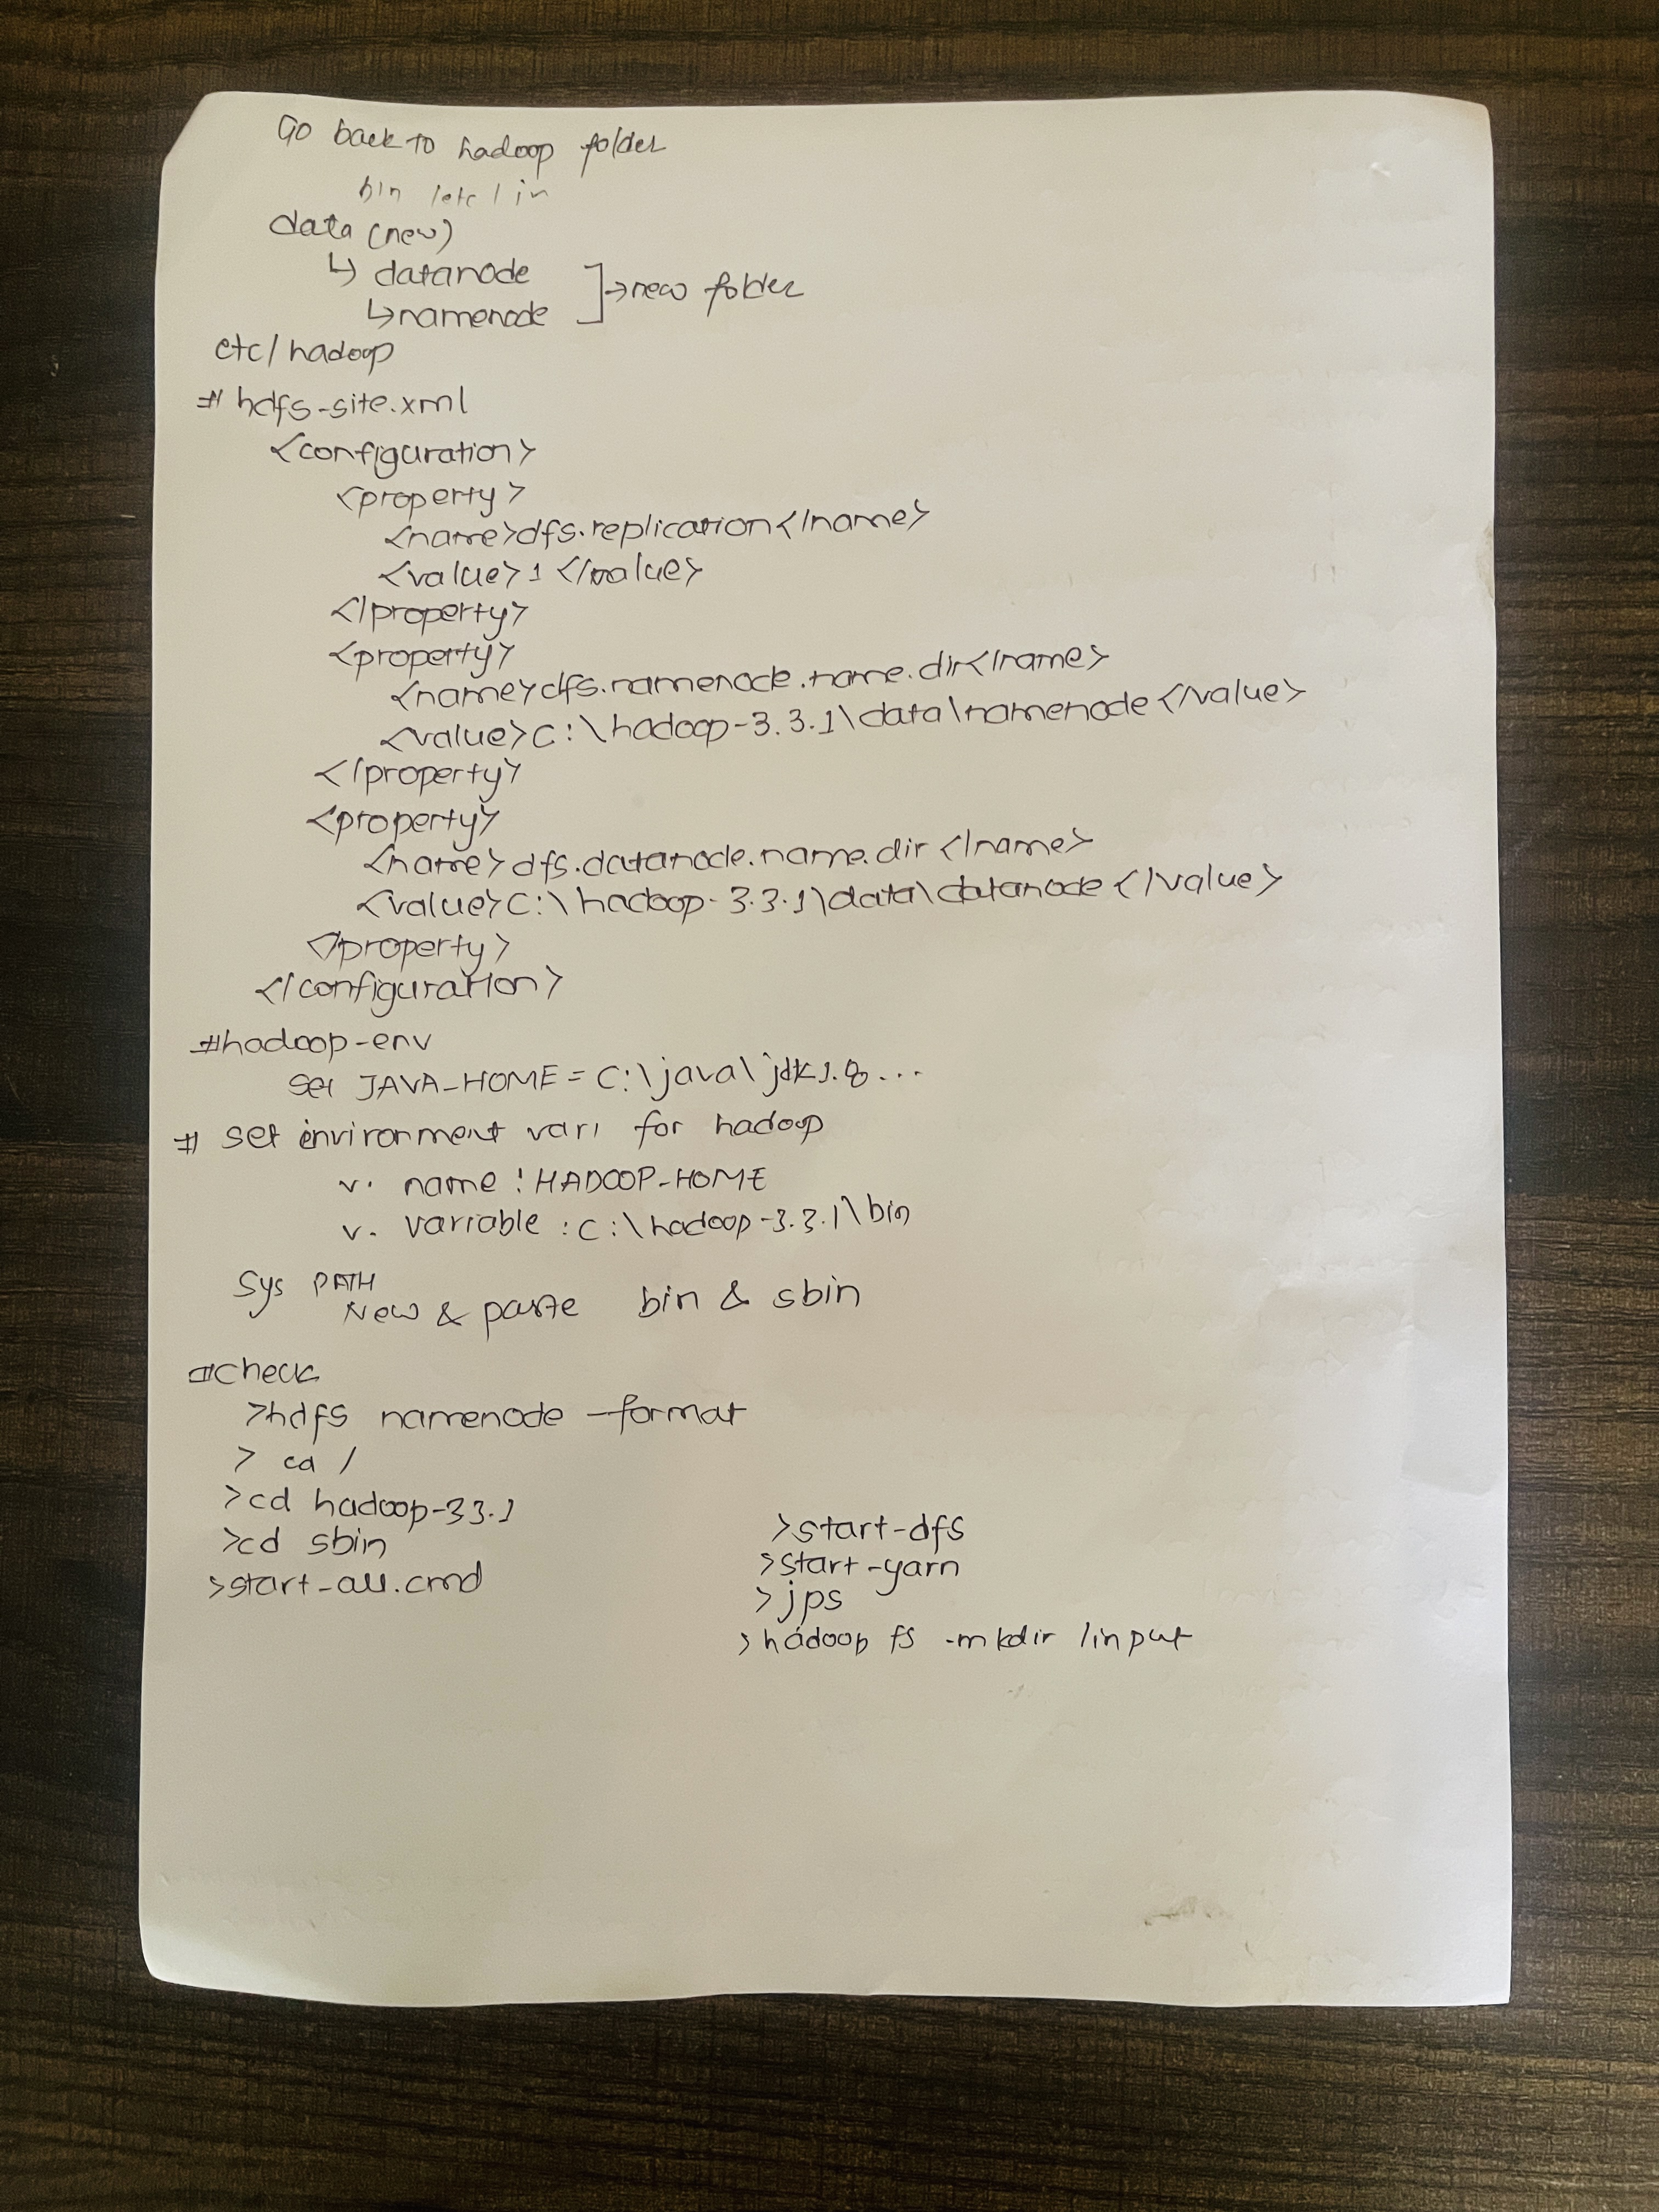 Go back to hadoop folder
bin /etc / in
data (new)
↳ datanode
↳ namenode ] → new folder
etc/hadoop
# hdfs-site.xml
<configuration>
<property>
<name>dfs.replication</name>
<value>1</value>
</property>
<property>
<name>dfs.namenode.name.dir</name>
<value>C:\hadoop-3.3.1\data\namenode</value>
</property>
<property>
<name>dfs.datanode.name.dir</name>
<value>C:\hadoop-3.3.1\data\datanode</value>
</property>
</configuration>
#hadoop-env
set JAVA_HOME=C:\java\jdk1.8...
# set environment vari for hadoop
v. name : HADOOP-HOME
v. variable : C:\hadoop-3.3.1\bin
Sys PATH
New & paste bin & sbin
#check
>hdfs namenode -format
> cd /
>cd hadoop-33.1
>cd sbin
>start-all.cmd
>start-dfs
>start-yarn
>jps
>hadoop fs -mkdir /input